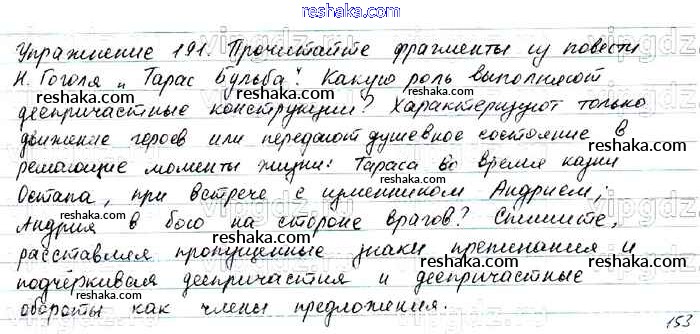 reshaka.com
Упражнение 191. Прочитайте фрагменты из повести
Н. Гоголя "Тарас Бульба". Какую роль выполняют
деепричастные конструкции? Характеризуют только
движение героев или передают душевное состояние в
решающие моменты жизни: Тараса во время казни
Остапа, при встрече с изменником Андрием;
Андрия в бою на стороне врагов? Спишите,
расставляя пропущенные знаки препинания и
подчёркивая деепричастия и деепричастные
обороты как члены предложения.
153